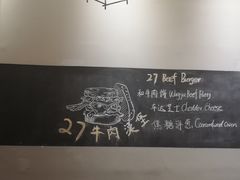 27牛肉漢堡
27 Beef Burger
和牛肉饼 Wagyu Beef Burg
车达芝士 Cheddar Cheese
焦糖洋葱